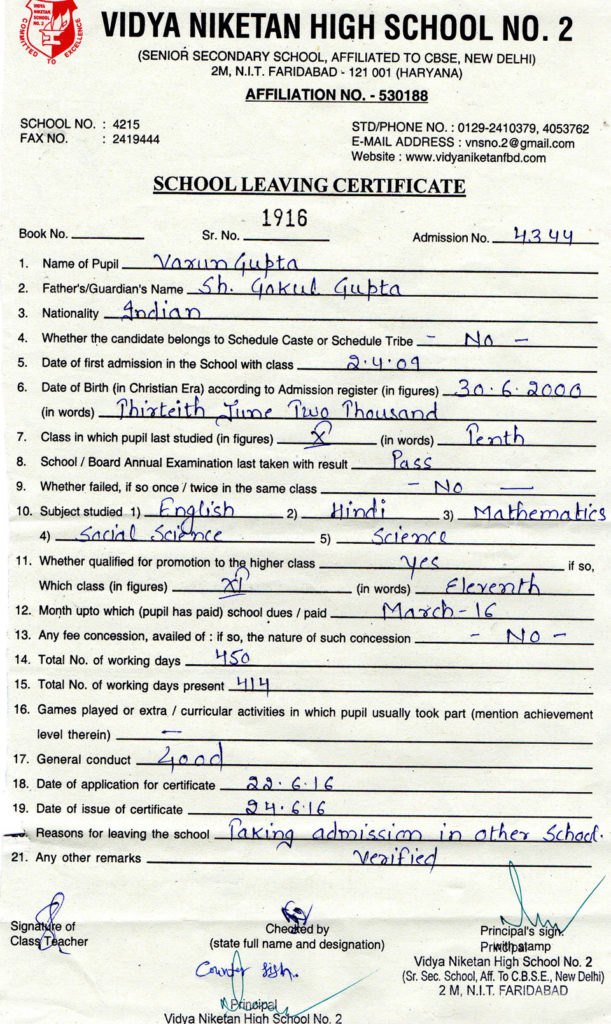 VIDYA NIKETAN SCHOOL NO. 2
COMMITTED TO EXCELLENCE
VIDYA NIKETAN HIGH SCHOOL NO. 2
(SENIOR SECONDARY SCHOOL, AFFILIATED TO CBSE, NEW DELHI)
2M, N.I.T. FARIDABAD - 121 001 (HARYANA)
AFFILIATION NO. - 530188
SCHOOL NO. : 4215
FAX NO. : 2419444
STD/PHONE NO. : 0129-2410379, 4053762
E-MAIL ADDRESS : vnsno.2@gmail.com
Website : www.vidyaniketanfbd.com
SCHOOL LEAVING CERTIFICATE
Book No. Sr. No. 1916 Admission No. 4344
1. Name of Pupil Varun Gupta
2. Father's/Guardian's Name Sh. Gokul Gupta
3. Nationality Indian
4. Whether the candidate belongs to Schedule Caste or Schedule Tribe - No -
5. Date of first admission in the School with class 2.4.09
6. Date of Birth (in Christian Era) according to Admission register (in figures) 30.6.2000
(in words) Thirteith June Two Thousand
7. Class in which pupil last studied (in figures) X (in words) Tenth
8. School / Board Annual Examination last taken with result Pass
9. Whether failed, if so once / twice in the same class - No -
10. Subject studied 1) English 2) Hindi 3) Mathematics
4) Social Science 5) Science
11. Whether qualified for promotion to the higher class yes if so,
Which class (in figures) XI (in words) Eleventh
12. Month upto which (pupil has paid) school dues / paid March-16
13. Any fee concession, availed of : if so, the nature of such concession - No -
14. Total No. of working days 450
15. Total No. of working days present 414
16. Games played or extra / curricular activities in which pupil usually took part (mention achievement
level therein) -
17. General conduct Good
18. Date of application for certificate 22.6.16
19. Date of issue of certificate 24.6.16
Reasons for leaving the school Taking admission in other School.
21. Any other remarks Verified
Signature of
Class Teacher
Checked by
(state full name and designation)
Principal's sign.
with stamp
Principal
Vidya Niketan High School No. 2
(Sr. Sec. School, Aff. To C.B.S.E., New Delhi)
2 M, N.I.T. FARIDABAD
Counter Sign.
Principal
Vidya Niketan High School No. 2